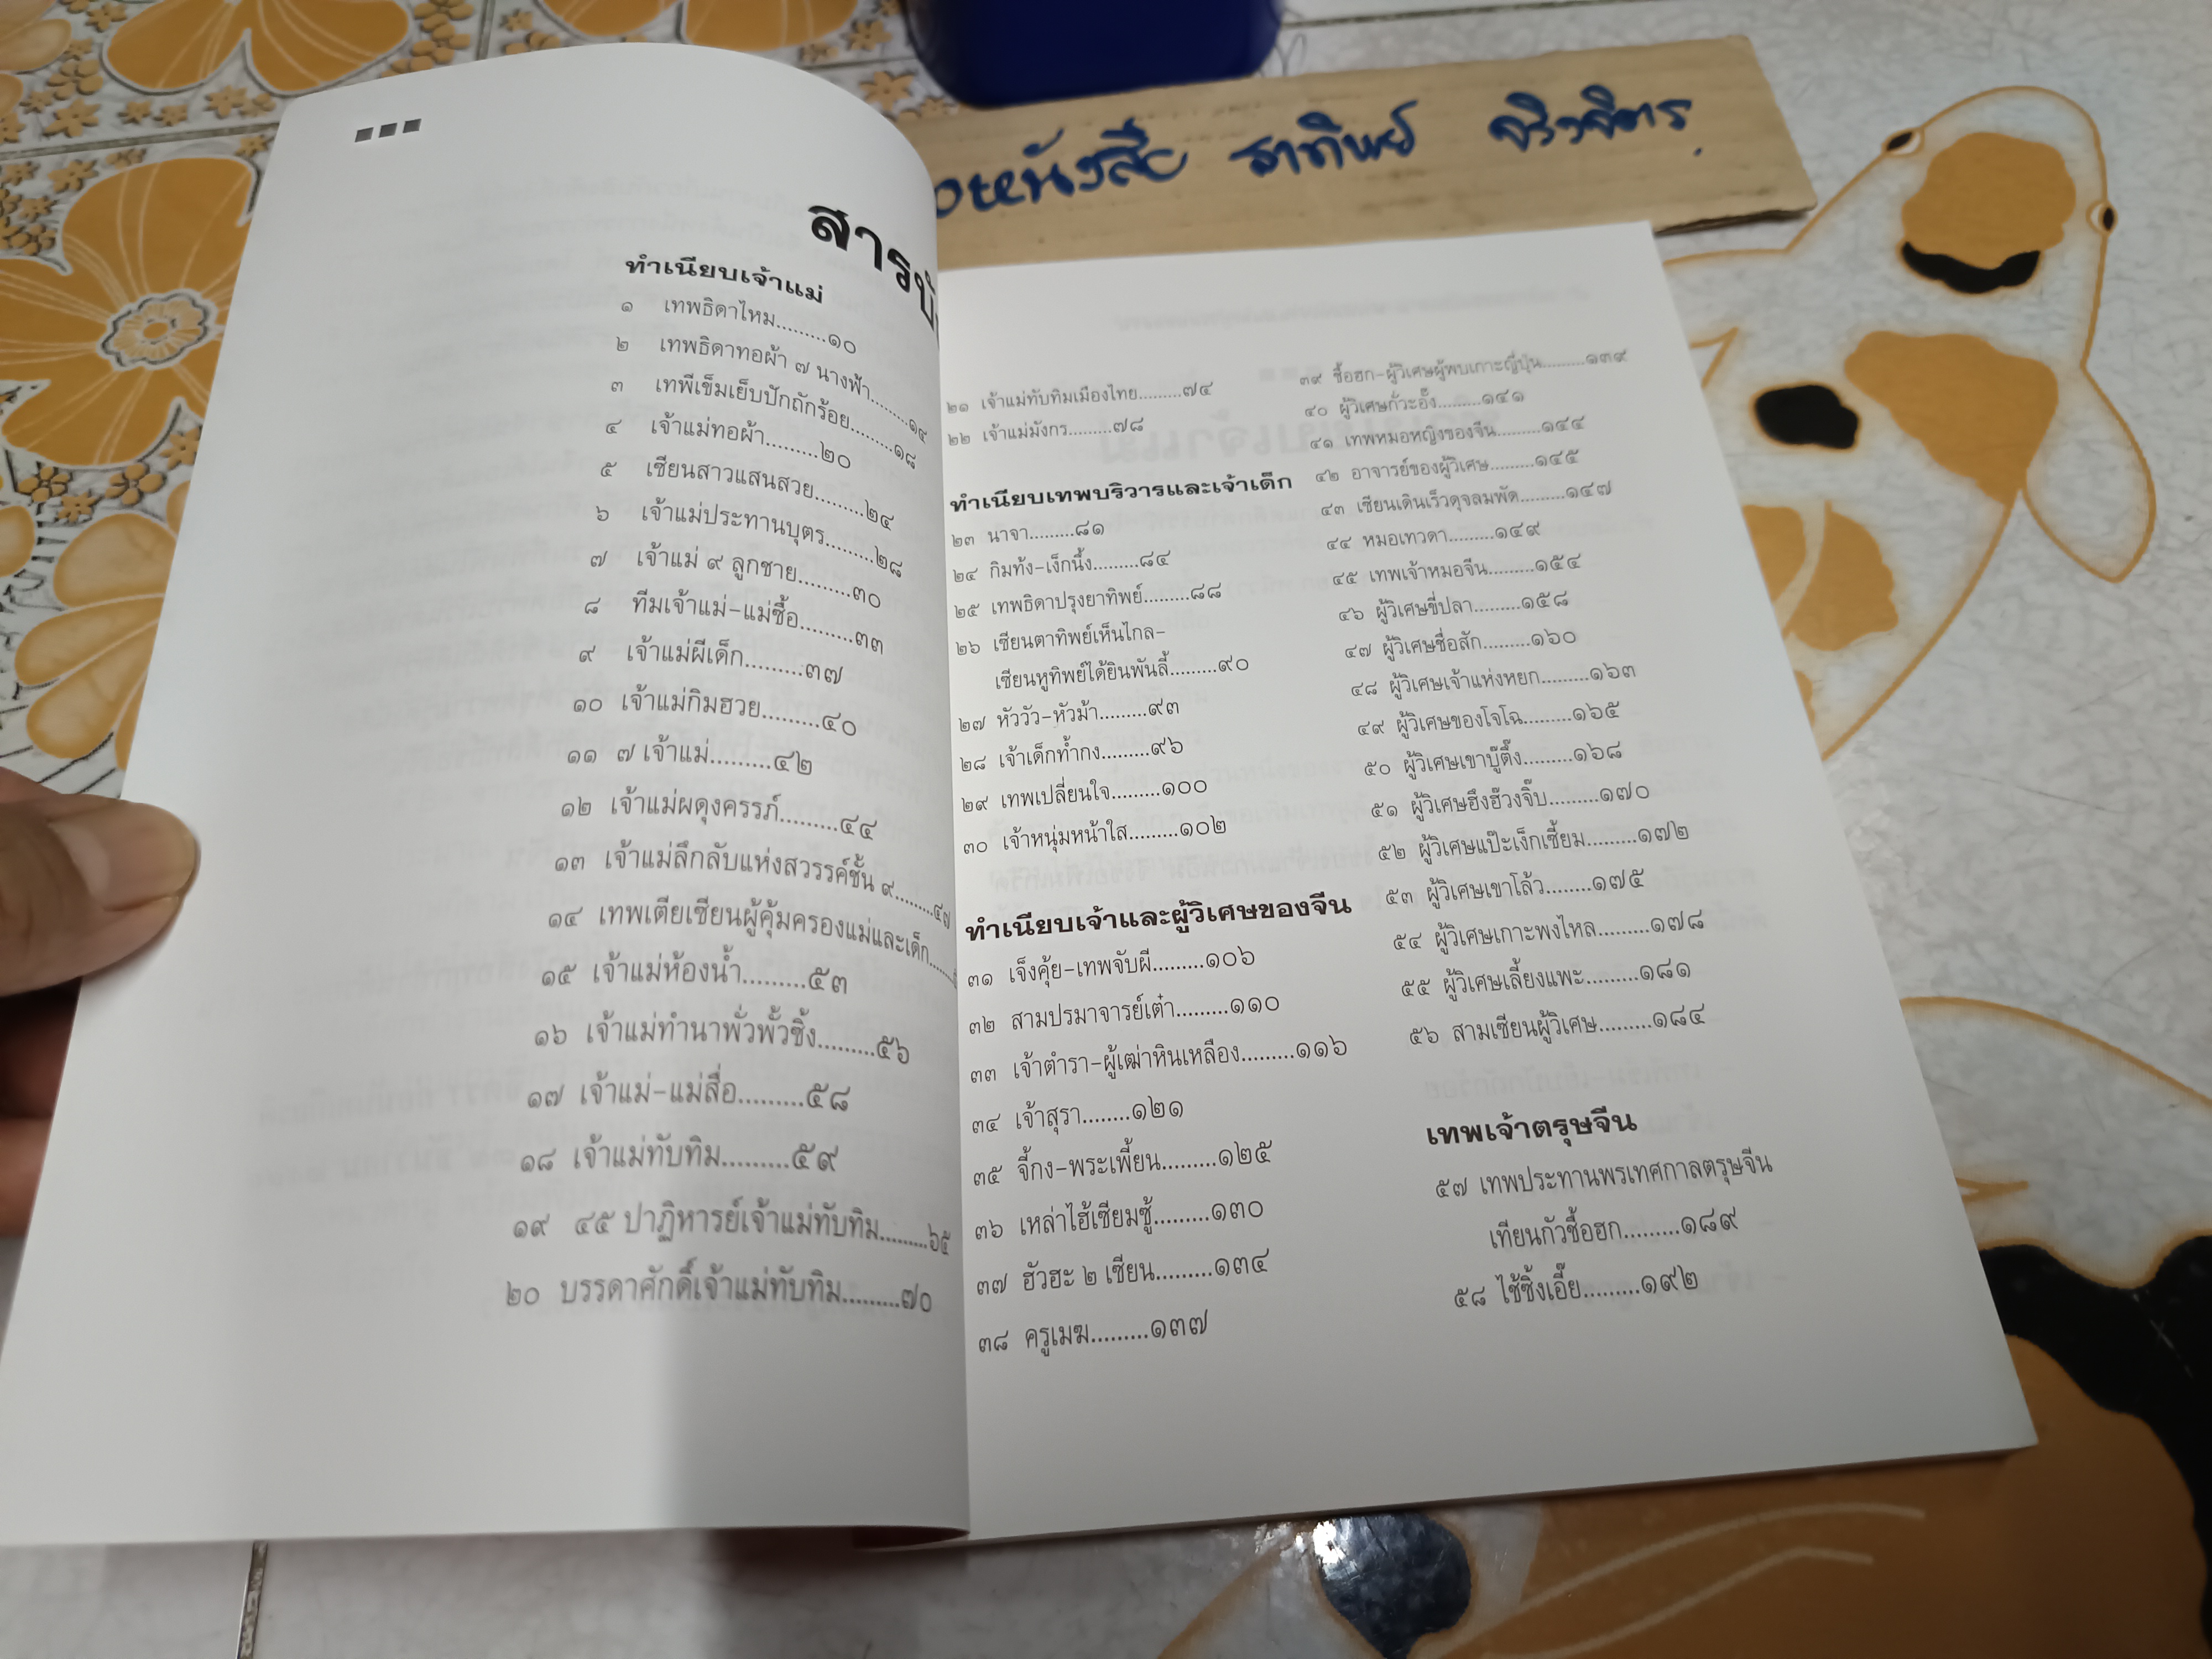 หนังสือ ธาทิพย์
สารบั
ทำเนียบเจ้าแม่
๑ เทพธิดาไหม.........๑๐
๒ เทพธิดาทอผ้า ๗ นางฟ้า.........๑๔
๓ เทพีเข็มเย็บปักถักร้อย.........๑๘
๔ เจ้าแม่ทอผ้า.........๒๐
๕ เซียนสาวแสนสวย.........๒๔
๖ เจ้าแม่ประทานบุตร.........๒๘
๗ เจ้าแม่ ๙ ลูกชาย.........๓๐
๘ ทีมเจ้าแม่-แม่ซื้อ.........๓๓
๙ เจ้าแม่ผีเด็ก.........๓๗
๑๐ เจ้าแม่กิมฮวย.........๔๐
๑๑ ๗ เจ้าแม่.........๔๒
๑๒ เจ้าแม่ผดุงครรภ์.........๔๔
๑๓ เจ้าแม่ลึกลับแห่งสวรรค์ชั้น ๙.........๔๗
๑๔ เทพเตียเซียนผู้คุ้มครองแม่และเด็ก.........
๑๕ เจ้าแม่ห้องน้ำ.........๕๓
๑๖ เจ้าแม่ทำนาพั่วพั้วซิ้ง.........๕๖
๑๗ เจ้าแม่-แม่สื่อ.........๕๘
๑๘ เจ้าแม่ทับทิม.........๕๙
๑๙ ๔๕ ปาฏิหารย์เจ้าแม่ทับทิม.........๖๕
๒๐ บรรดาศักดิ์เจ้าแม่ทับทิม.........๗๐
๒๑ เจ้าแม่ทับทิมเมืองไทย.........๗๔
๒๒ เจ้าแม่มังกร.........๗๘
ทำเนียบเทพบริวารและเจ้าเด็ก
๒๓ นาจา.........๘๑
๒๔ กิมท้ง-เง็กนึ้ง.........๘๔
๒๕ เทพธิดาปรุงยาทิพย์.........๘๘
๒๖ เซียนตาทิพย์เห็นไกล-
เซียนหูทิพย์ได้ยินพันลี้.........๙๐
๒๗ หัววัว-หัวม้า.........๙๓
๒๘ เจ้าเด็กท้ำกง.........๙๖
๒๙ เทพเปลี่ยนใจ.........๑๐๐
๓๐ เจ้าหนุ่มหน้าใส.........๑๐๒
ทำเนียบเจ้าและผู้วิเศษของจีน
๓๑ เจ็งคุ้ย-เทพจับผี.........๑๐๖
๓๒ สามปรมาจารย์เต๋า.........๑๑๐
๓๓ เจ้าตำรา-ผู้เฒ่าหินเหลือง.........๑๑๖
๓๔ เจ้าสุรา.........๑๒๑
๓๕ จี้กง-พระเพี้ยน.........๑๒๕
๓๖ เหล่าไฮ้เซียมซู้.........๑๓๐
๓๗ ฮัวฮะ ๒ เซียน.........๑๓๔
๓๘ ครูเมฆ.........๑๓๗
๓๙ ซื้อฮก-ผู้วิเศษผู้พบเกาะญี่ปุ่น.........๑๓๙
๔๐ ผู้วิเศษกั้วะอั๊ง.........๑๔๑
๔๑ เทพหมอหญิงของจีน.........๑๔๔
๔๒ อาจารย์ของผู้วิเศษ.........๑๔๕
๔๓ เซียนเดินเร็วดุจลมพัด.........๑๔๗
๔๔ หมอเทวดา.........๑๔๙
๔๕ เทพเจ้าหมอจีน.........๑๕๔
๔๖ ผู้วิเศษขี่ปลา.........๑๕๘
๔๗ ผู้วิเศษชื่อสัก.........๑๖๐
๔๘ ผู้วิเศษเจ้าแห่งหยก.........๑๖๓
๔๙ ผู้วิเศษของโจโฉ.........๑๖๕
๕๐ ผู้วิเศษเขาบู๊ตึ๊ง.........๑๖๘
๕๑ ผู้วิเศษฮึงฮ๊วงจิ๊บ.........๑๗๐
๕๒ ผู้วิเศษแป๊ะเง็กเซี้ยม.........๑๗๒
๕๓ ผู้วิเศษเขาโล้ว.........๑๗๕
๕๔ ผู้วิเศษเกาะพงไหล.........๑๗๘
๕๕ ผู้วิเศษเลี้ยงแพะ.........๑๘๑
๕๖ สามเซียนผู้วิเศษ.........๑๘๔
เทพเจ้าตรุษจีน
๕๗ เทพประทานพรเทศกาลตรุษจีน
เทียนกัวซื้อฮก.........๑๘๙
๕๘ ไช้ซิ้งเอี๊ย.........๑๙๒